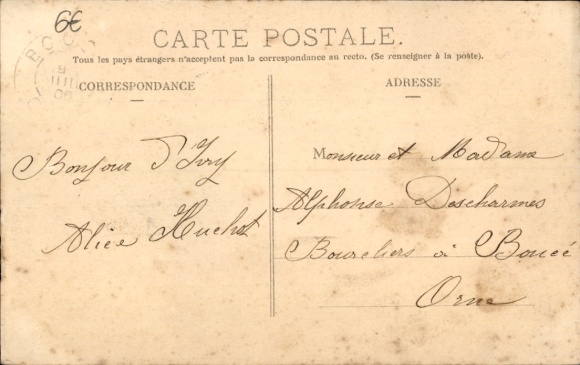 6€
CARTE POSTALE.
Tous les pays étrangers n'acceptent pas la correspondance au recto. (Se renseigner à la poste).
CORRESPONDANCE
ADRESSE
Bonjour d'Ivry
Alice Huchet
Monsieur et Madame
Alphonse Descharmes
Bourreliers à Boucé
Orne